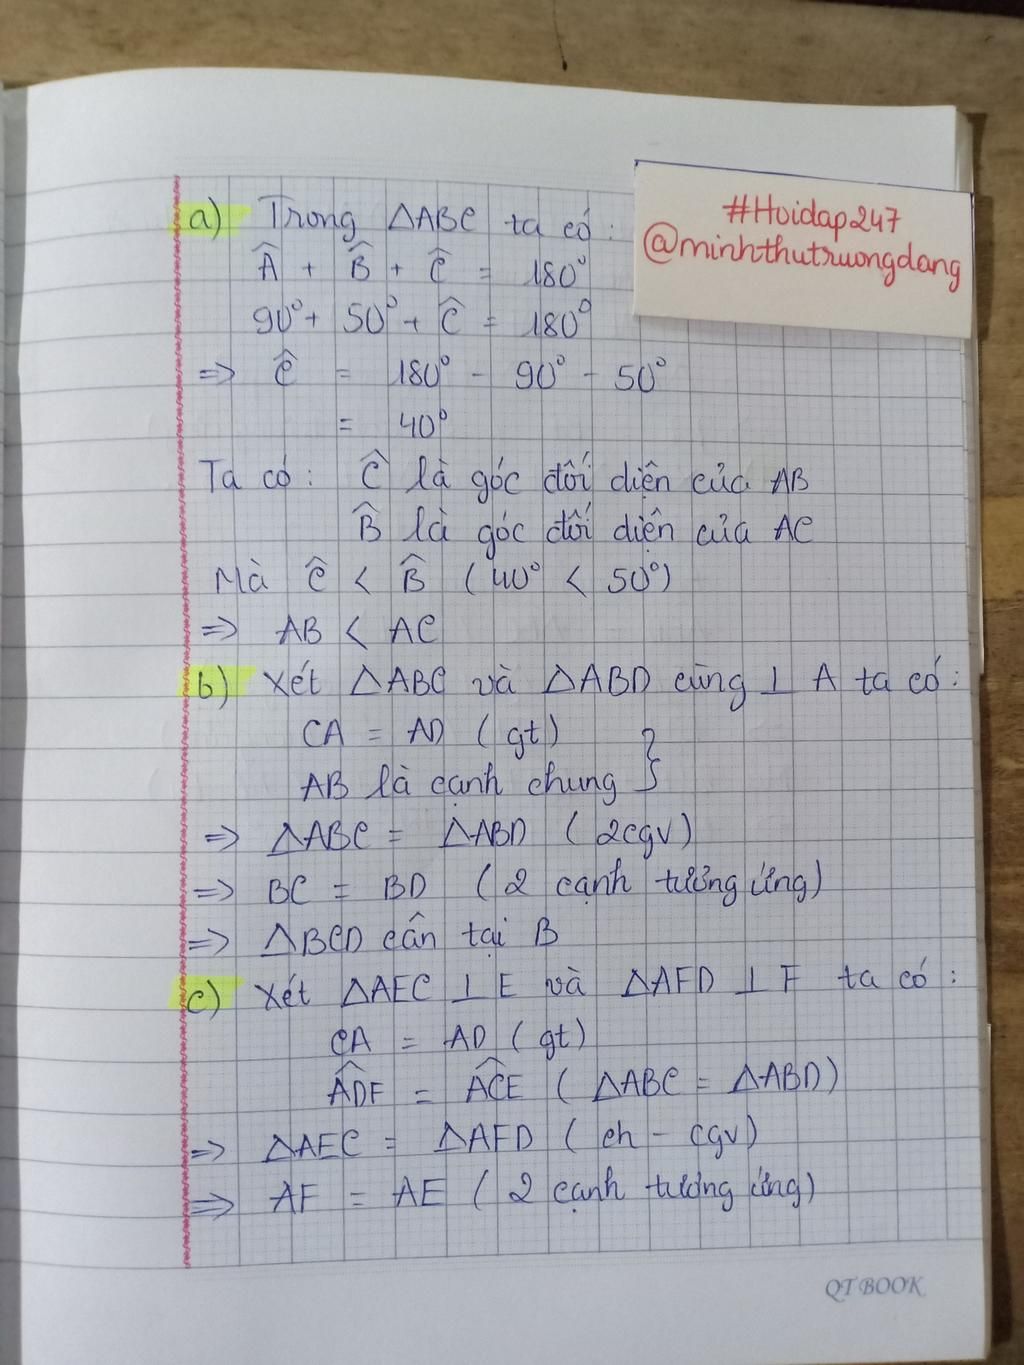 #Hoidap247
@minhthutruongdang
a) Trong ΔABC ta có:
Â + B̂ + Ĉ = 180°
90° + 50° + Ĉ = 180°
=> Ĉ = 180° - 90° - 50°
= 40°
Ta có: Ĉ là góc đối diện của AB
B̂ là góc đối diện của AC
Mà Ĉ < B̂ (40° < 50°)
=> AB < AC
b) Xét ΔABC và ΔABD cùng ⊥ A ta có:
CA = AD (gt)
AB là cạnh chung }
=> ΔABC = ΔABD (2cgv)
=> BC = BD (2 cạnh tương ứng)
=> ΔBCD cân tại B
c) Xét ΔAEC ⊥ E và ΔAFD ⊥ F ta có:
CA = AD (gt)
ADF̂ = ACÊ (ΔABC = ΔABD)
=> ΔAEC = ΔAFD (ch - cgv)
=> AF = AE (2 cạnh tương ứng)
QT BOOK